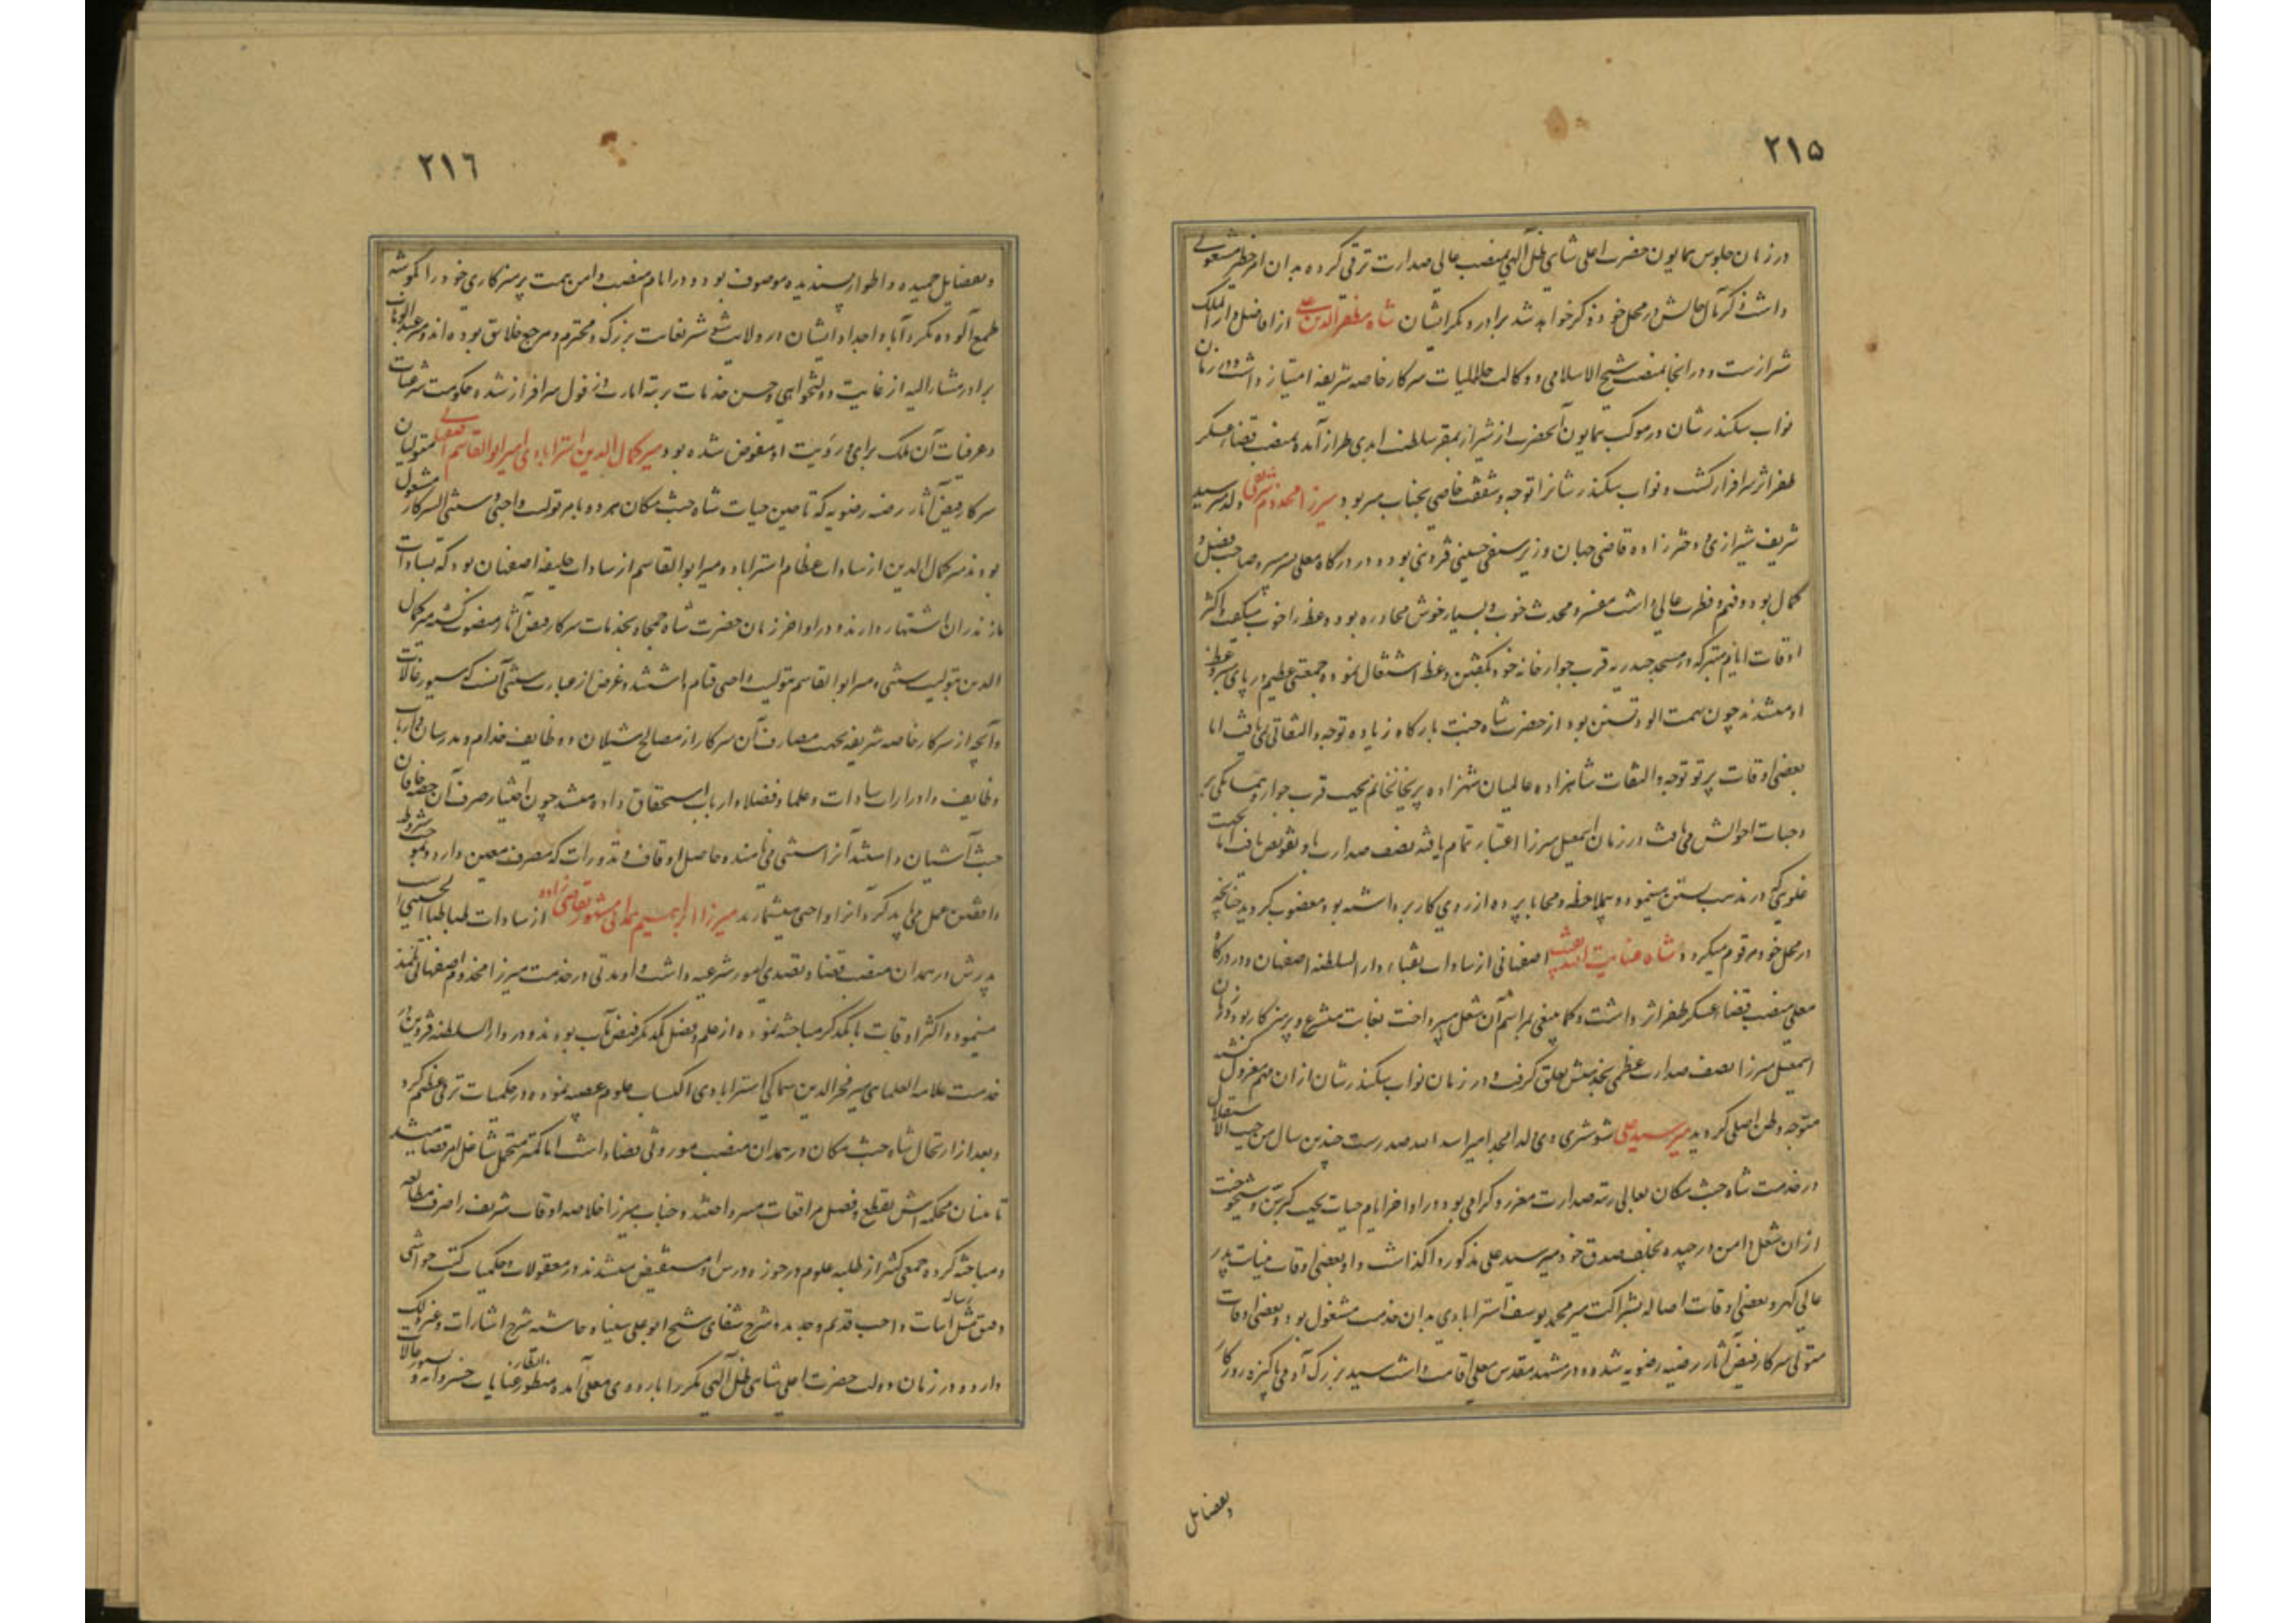 ٢١۵
در زمان جلوس همایون حضرت اعلی شاهی ظل اللهی بمنصب عالی صدارت ترقی کرده بدان امر خطیر مشغولی
داشت ذکر مآل حالش در محل خود ذکر خواهد شد برادر دیگر ایشان شاه مظفرالدین علی از افاضل دار الملک
شیراز ست و در انجا بمنصب شیخ الاسلامی و وکالت حلالیات سرکار خاصه شریفه امتیاز داشت و در زمان
نواب سکندر شان در موکب همایون آنحضرت از شیراز بمقر سلطنت ابدی طراز آمده بمنصب قضاء عسکر
ظفر اثر سرافراز گشت و نواب سکندر شانرا توجه و شفقت خاصی بجناب میر بود میرزا مخدوم شریفی ولد میر سید
شریف شیرازی و دختر زاده قاضی جهان وزیر سیفی حسینی قزوینی بود و در درگاه معلی بسر میبرد صاحب فضل و
کمال بود و فهم و فطرت عالی داشت مفسر و محدث خوب و بسیار خوش محاوره بود وعظ را خوب میگفت و اکثر
اوقات ایام متبرکه در مسجد حیدریه قرب جوار خانه خود بگفتن وعظ اشتغال نموده جمعیتی عظیم در پای منبر وعظ
او میشدند چون تهمت آلود تسنن بود از حضرت شاه جنت بارگاه زیاده توجه و التفاتی نمی یافت اما
بعضی اوقات پرتو توجه و التفات شاهزاده عالمیان شهزاده پریخان خانم بجهت قرب جوار و همسایگی بر
وجنات احوالش می تافت در زمان اسمعیل میرزا اعتبار تمام یافته نصف صدارت باو تفویض یافت اما بجهت
غلوی که در مذهب تسنن مینمود و بیملاحظه و محابا پرده از روی کار برداشته بود مغضوب گردید چنانچه
در محل خود مرقوم میگردد شاه عنایت الله اصفهانی از سادات نقباء دار السلطنه اصفهان و در درگاه
معلی منصب قضاء عسکر ظفر اثر داشت و کما ینبغی بمراسم آن شغل میپرداخت بغایت متشرع و پرهیزکار بود در زمان
اسمعیل میرزا نصف صدارت عظمی بخدمتش تعلق گرفت و در زمان نواب سکندر شان از ان مهم معزول گشته
متوجه وطن اصلی گردید میر سید علی شوشتری ولد امجد امیر اسد الله صدر ست چندین سال من حیث الاستقلال
در خدمت شاه جنت مکان بعالی رتبه صدارت معزز و گرامی بود و در اواخر ایام حیات بجهت کبر سن و شیخوخت
از ان شغل دامن در چیده بخلف صدق خود میر سید علی مذکور واگذاشت و او بعضی اوقات بنیابت پدر
عالی گهر و بعضی اوقات اصالة بشراکت میر محمد یوسف استرابادی بدان خدمت مشغول بود و بعضی اوقات
متولی سرکار فیض آثار رضیه رضویه شده و در مشهد مقدس معلی اقامت داشت سید بزرگ آدمی پاکیزه روزگار
وبفضایل
٢١٦
وبفضایل حمیده و اطوار پسندیده موصوف بود و در ایام منصب دامن همت پرهیزکاری خود را بگوشه
طمع آلوده نکرد آبا و اجداد ایشان در ولایت شوشتر بغایت بزرگ و محترم و مرجع خلایق بوده اند و میر عبد الوهاب
برادر مشار الیه از غایت دولتخواهی و حسن خدمات برتبه امارت و نزول سرافراز شده حکومت شرعیات
و عرفیات آن ملک برای و رویت او مفوض شده بود میر کمال الدین استرابادی امیر ابوالقاسم اصفهانی متولیان
سرکار فیض آثار رضیه رضویه که تا حین حیات شاه جنت مکان هر دو بامر تولیت واجبی و سنتی السرکار مشغول
بودند میر کمال الدین از سادات عظام استراباد و میر ابوالقاسم از سادات خلیفه اصفهان بود که بسادات
مازندران اشتهار دارند و در اواخر زمان حضرت شاه جمجاه بخدمات سرکار فیض آثار منصوب گشته میر کمال
الدین بتولیت سنتی و میر ابوالقاسم بتولیت واجبی قیام داشتند و غرض از عبارت سنتی آنست که سیورغالات
و آنچه از سرکار خاصه شریفه بجهت مصارف آن سرکار از مصالح شیلان و وظایف خدام و مدرسان و ارباب
وظایف و ادرارات سادات و علما و فضلا و ارباب استحقاق داده میشد چون اختیار صرف آن حضرت خاقان
جنت آشیان داشتند آنرا سنتی می نامند و حاصل اوقاف و نذورات که مصرف معین دارد و بموجب شروط
واقفین عمل می باید کرد آنرا واجبی میشمارند میرزا ابراهیم همدانی مشهور بقاضی زاده از سادات طباطبا الحسینی است
پدرش در همدان منصب قضا و تصدی امور شرعیه داشت و او مدتی در خدمت میرزا مخدوم اصفهانی تلمذ
مینمود و اکثر اوقات با یکدیگر مباحثه نموده از علم و فضل یکدیگر فیض یاب بودند و در دار السلطنه قزوین در
خدمت علامه العلمای میر فخر الدین سماکی استرابادی اکتساب علوم عقلیه نموده در حکمیات ترقی عظیم کرد
و بعد از ارتحال شاه جنت مکان در همدان منصب موروثی قضاء داشت اما کمتر متحمل شاغل امر قضا میشد
نایبان محکمه اش بقطع و فصل مرافعات میپرداختند و جناب میرزا خلاصه اوقات شریف را صرف مطالعه
و مباحثه کرده جمعی کثیر از طلبه علوم در حوزه درس او مستفیض میشدند در معقولات و حکمیات کتب حواشی
دقیق مثل رساله اثبات واجب قدیم و جدید و شرح شفای شیخ ابو علی سینا و حاشیه شرح اشارات و غیر ذلک
دارد و در زمان دولت حضرت اعلی شاهی ظل اللهی مکررا باردوی معلی آمده منظور انظار عنایات خسروانه و سیورغالات